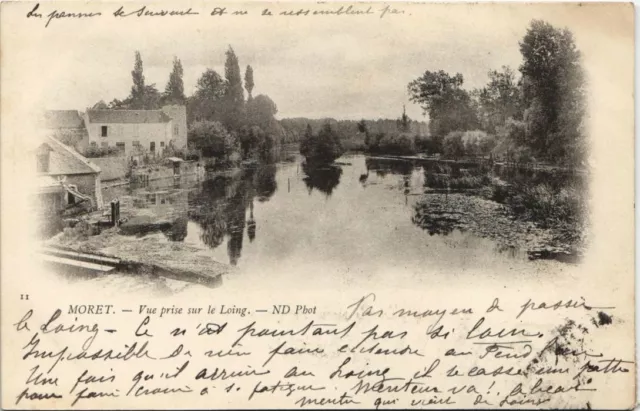 Les pannes se suivent et ne se ressemblent pas
11
MORET. — Vue prise sur le Loing. — ND Phot
Pas moyen de passer
le Loing — Ce n'est pourtant pas si loin.
Impossible de rien faire entendre au
Une fois qu'il arrive au Loing il se casse une patte
pour faire croire à sa fatigue. Menteur va! à beau
mentir qui vient de Loing